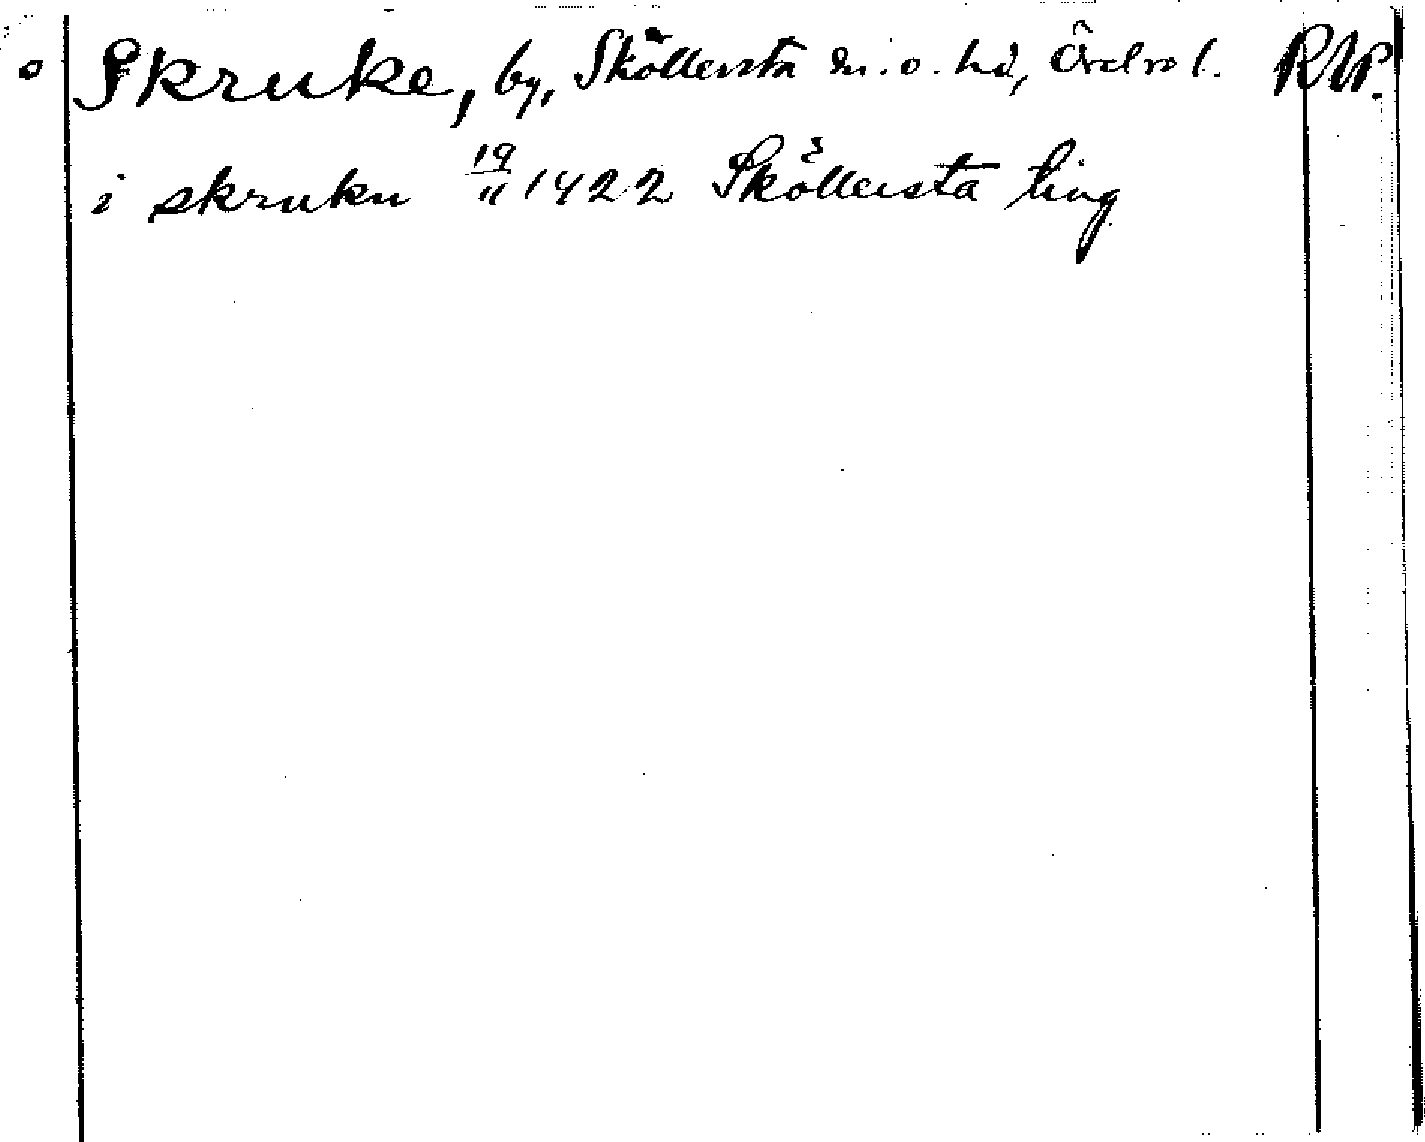 Skruke, by, Sköllersta sn. o. hd, Örebro l. RAP.
i skruku 19/11 1422 Sköllersta ting